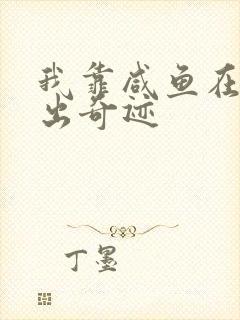 我靠咸鱼在
出奇迹
丁墨